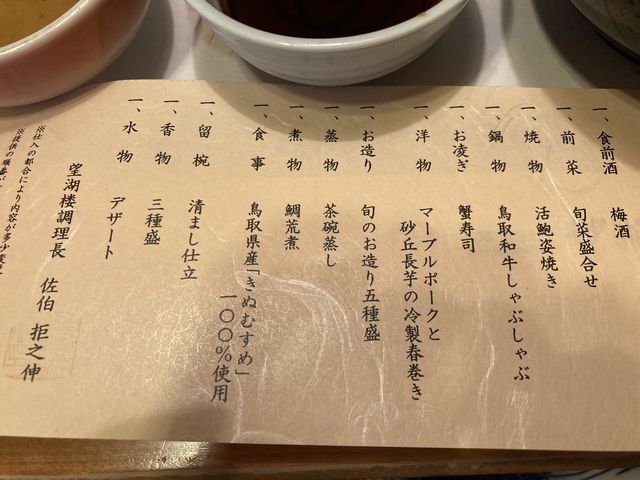 一、食前酒　梅酒
一、前菜　旬菜盛合せ
一、焼物　活鮑姿焼き
一、鍋物　鳥取和牛しゃぶしゃぶ
一、お凌ぎ　蟹寿司
一、洋物　マーブルポークと
砂丘長芋の冷製春巻き
一、お造り　旬のお造り五種盛
一、蒸物　茶碗蒸し
一、煮物　鯛荒煮
一、食事　鳥取県産「きぬむすめ」
一〇〇%使用
一、留椀　清まし仕立
一、香物　三種盛
一、水物　デザート
望湖楼調理長　佐伯　拒之伸
※仕入の都合により内容が多少変更
※提供の順番が